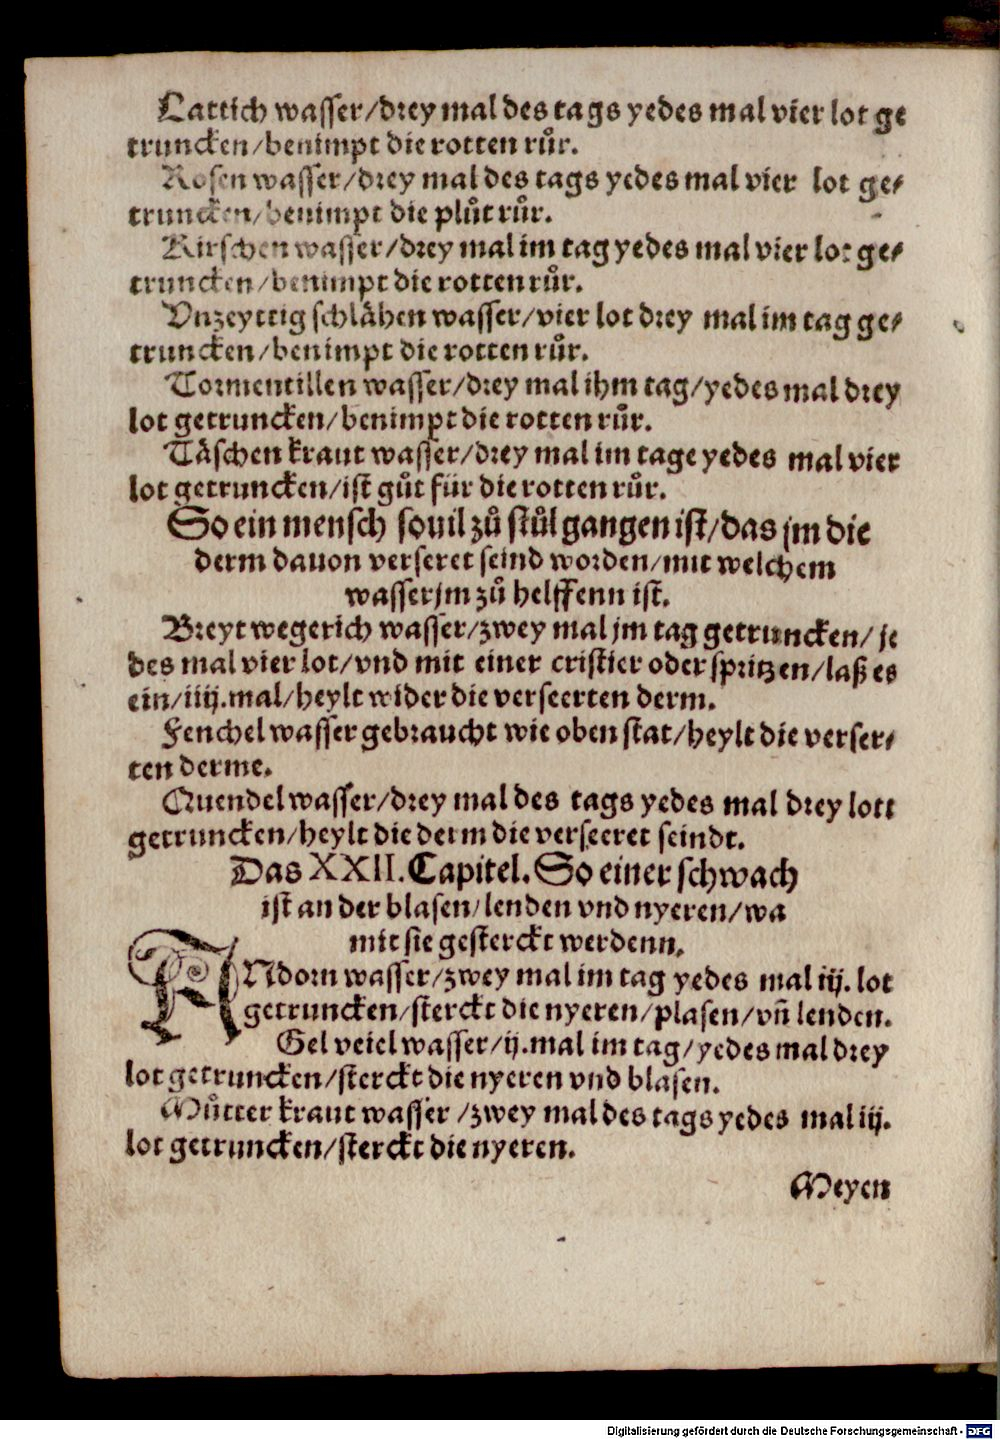 Lattich wasser/drey mal des tags yedes mal vier lot ge
truncken/benimpt die rotten růr.
Rosen wasser/drey mal des tags yedes mal vier lot ge⸗
truncken/benimpt die plůt růr.
Kirschen wasser/drey mal im tag yedes mal vier lot ge⸗
truncken/benimpt die rotten růr.
Vnzeyttig schlåhen wasser/vier lot drey mal im tag ge⸗
truncken/benimpt die rotten růr.
Tormentillen wasser/drey mal ihm tag/yedes mal drey
lot getruncken/benimpt die rotten růr.
Tåschen kraut wasser/drey mal im tage yedes mal vier
lot getruncken/ist gůt für die rotten růr.
So ein mensch souil zů stůl gangen ist/das jm die
derm dauon verseret seind worden/mit welchem
wasser jm zů helffenn ist.
Breyt wegerich wasser/zwey mal jm tag getruncken/je
des mal vier lot/vnd mit einer cristier oder spritzen/laß es
ein/iiij.mal/heylt wider die verseerten derm.
Fenchel wasser gebraucht wie oben stat/heylt die verser⸗
ten derme.
Quendel wasser/drey mal des tags yedes mal drey lott
getruncken/heylt die derm die verseeret seindt.
Das XXII.Capitel.So einer schwach
ist an der blasen/lenden vnd nyeren/wa
mit sie gesterckt werdenn.
ANdorn wasser/zwey mal im tag yedes mal iij. lot
getruncken/sterckt die nyeren/plasen/vñ lenden.
Gel veiel wasser/ij.mal im tag/yedes mal drey
lot getruncken/sterckt die nyeren vnd blasen.
Můtter kraut wasser/zwey mal des tags yedes mal iij.
lot getruncken/sterckt die nyeren.
Meyen
Digitalisierung gefördert durch die Deutsche Forschungsgemeinschaft - DFG